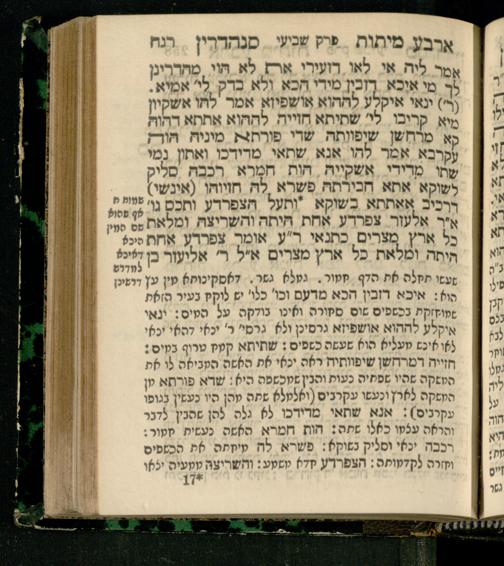 ארבע מיתות פרק שביעי סנהדרין רנח
אמר ליה אי לאו דזעירי את לא הוי מהדרינן
לך מי איכא דזבין מידי הכא ולא בדק לי׳ אמיא.
(ר׳) ינאי איקלע לההוא אושפיזא אמר להו אשקיון
מיא קריבו לי׳ שתיתא חזייה לההוא אתתא דהוה
קא מרחשן שיפוותה שדי פורתא מיניה הוה
עקרבא אמר להו אנא שתאי מדידכו ואתון נמי
שתו מדידי אשקייה הות חמרא רכבה סליק
לשוקא אתא חבירתה פשרא לה חזיוהו (אינשי)
דרכיב אאתתא בשוקא *ותעל הצפרדע ותכס גו׳
א״ר אלעזר צפרדע אחת היתה והשריצה ומלאת
כל ארץ מצרים כתנאי ר״ע אומר צפרדע אחת
היתה ומלאת כל ארץ מצרים א״ל ר׳ אליעזר בן
שמות ח
אף שהוא
שם המין
היכא
דאיכא
למדרש
דרשינן
שעשו תקלה את הדף קשור. גמלא גשר. דאסקיניתא מין עץ
הוא: איכא דזבין הכא מדעם וכו׳ כלו׳ יש לוקח בעיר הזאת
שמוחזקת בכשפים שום סחורה ואינו בודקה על המים: ינאי
איקלע לההוא אושפיזא גרסינן ולא גרסי׳ ר׳ ינאי דהאי ינאי
לאו איניש מעליא הוא שעשה כשפים: שתיתא קמח טרוף במים:
חזייה דמרחשן שיפוותיה ראה ינאי את האשה המביאה לו את
המשקה שהיו שפתיה נעות והבין שמכשפה היא: שדא פורתא מן
המשקה לארץ ונעשו עקרבים (ואלמלא שתה מהן היו נעשין בגופו
עקרבים): אנא שתאי מדידכו לא גלה להן שהבין לדבר
והראה עצמו כאלו שתה: הות חמרא האשה נעשית חמור:
רכבה ינאי וסליק בשוקא: פשרא לה מיחתה את הכשפים
וחזרה לקדמותה: הצפרדע חדא משמע: והשריצה ממעיה יצאו
17*